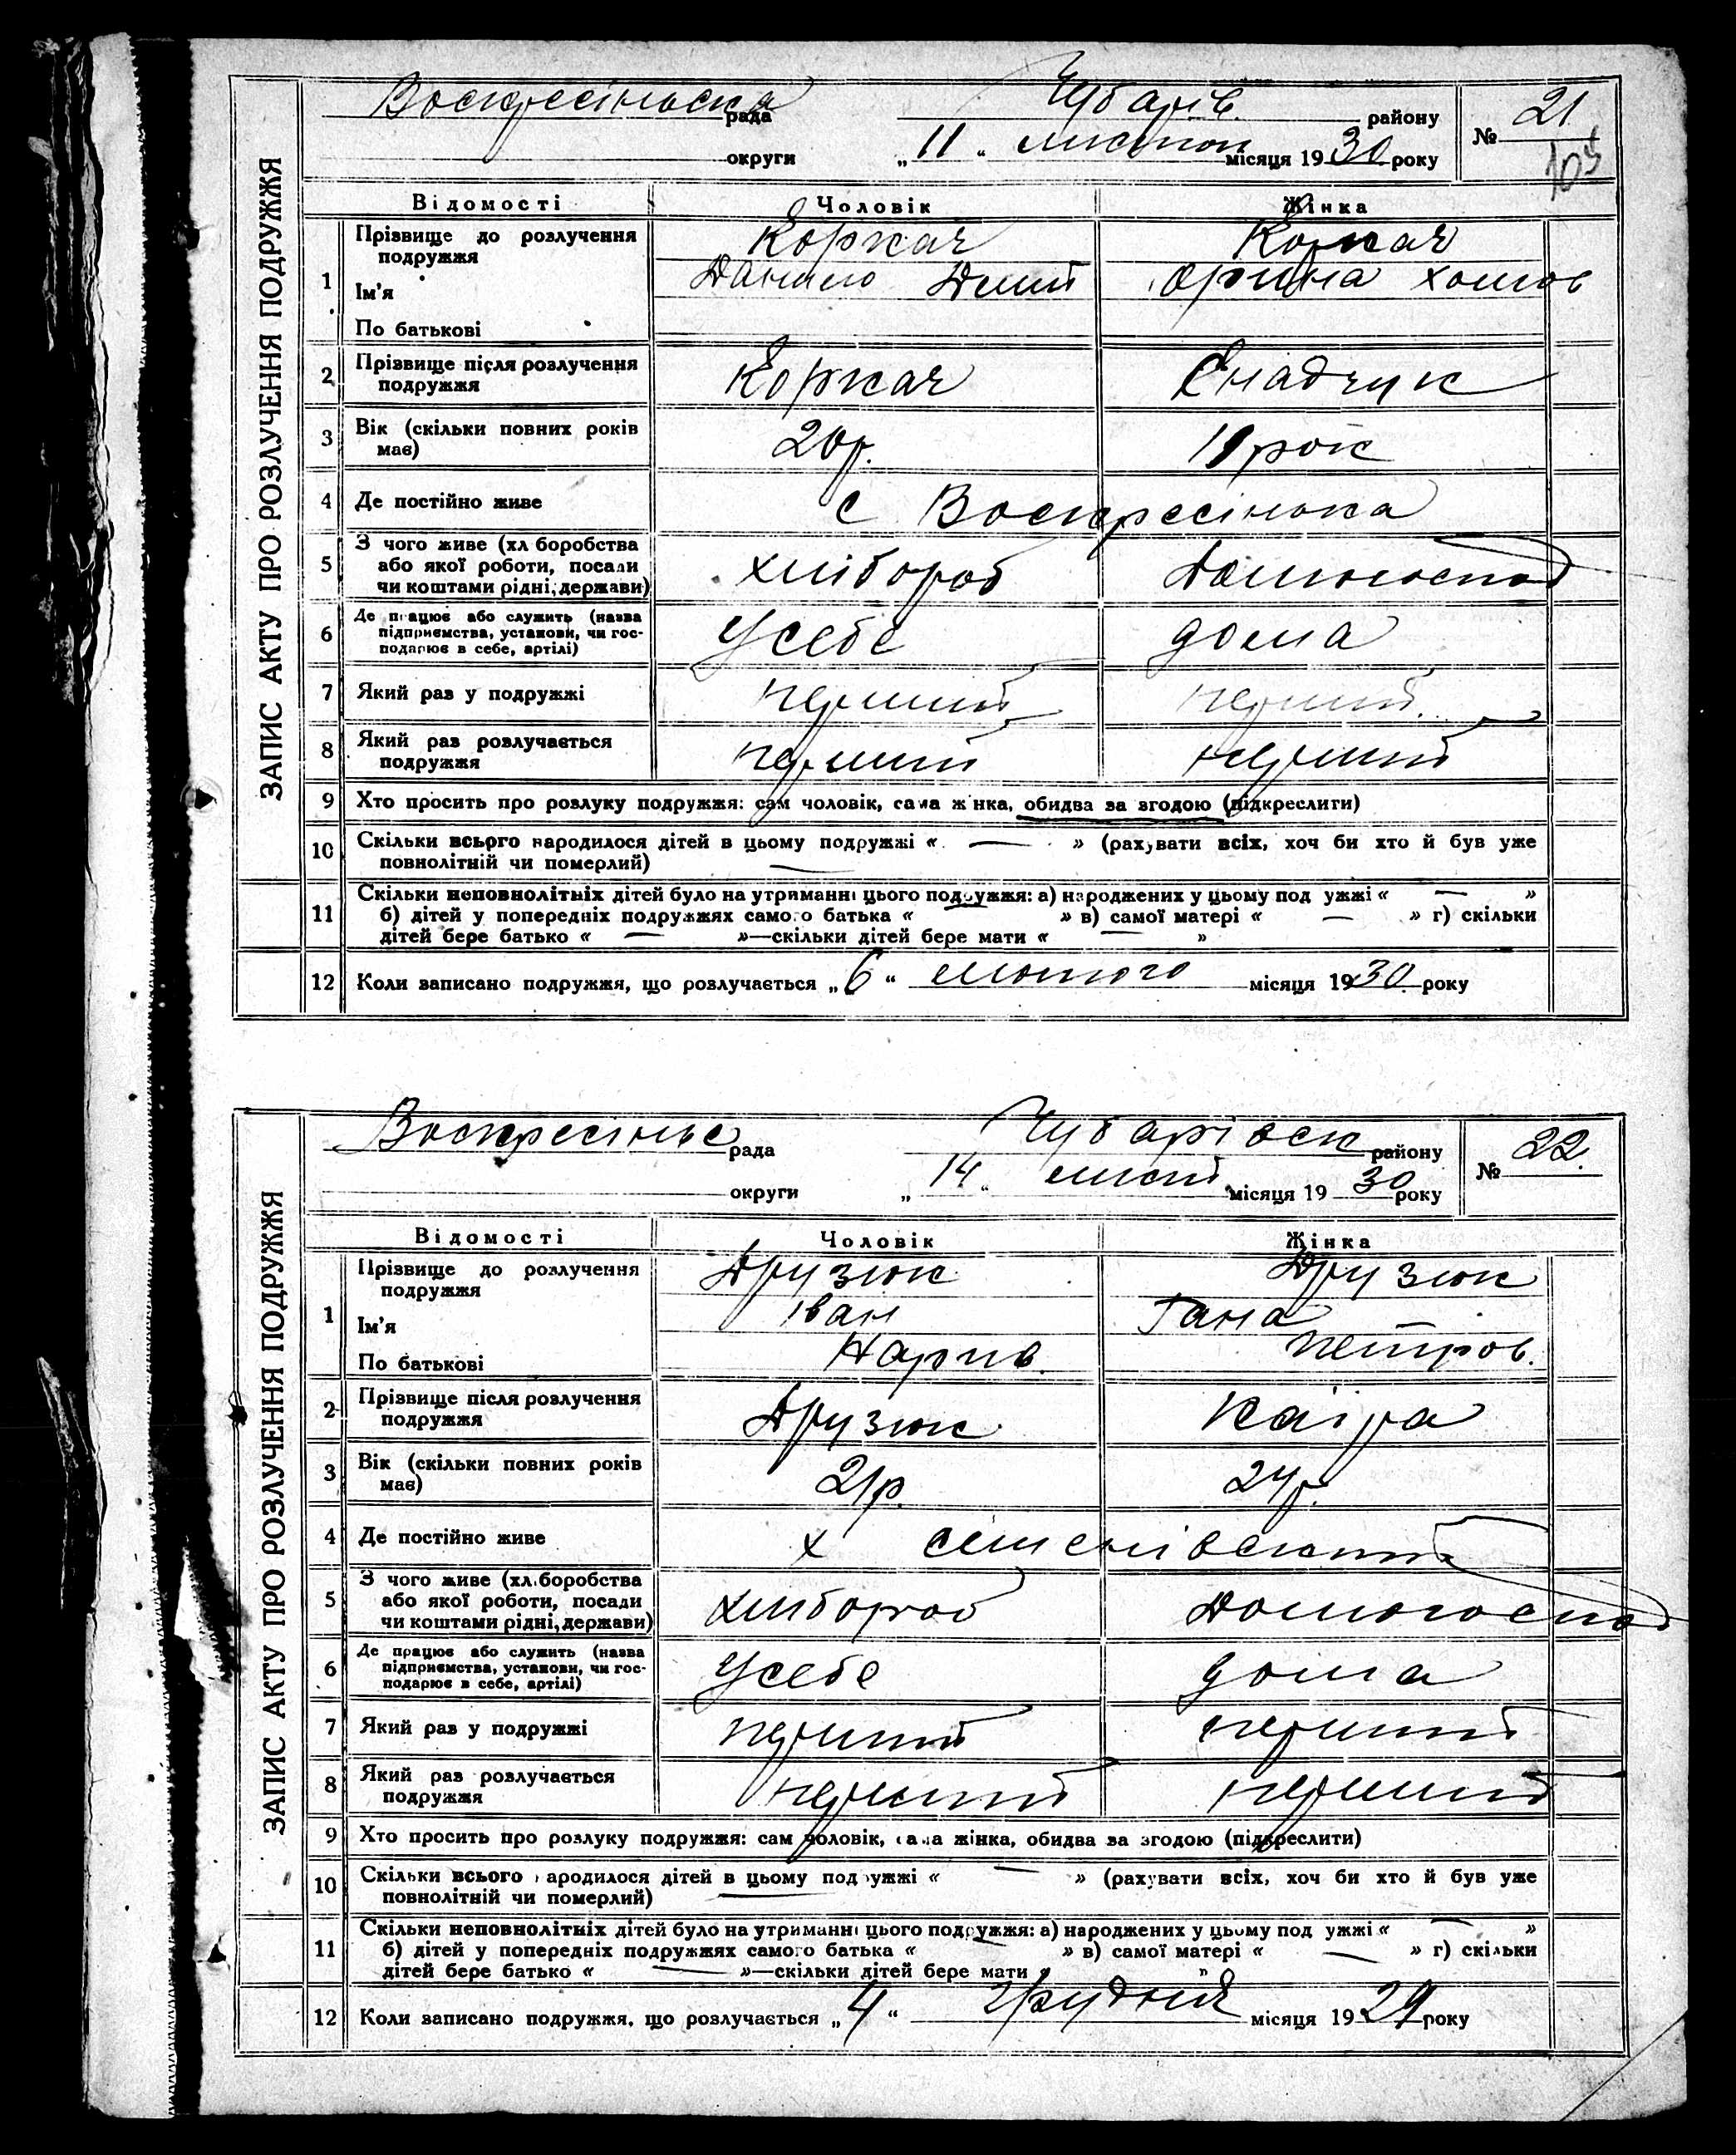 ЗАПИС АКТУ ПРО РОЗЛУЧЕННЯ ПОДРУЖЖЯ
Воскресінська рада Чубарів. району № 21
округи „ 11 “ листоп місяця 19 30 року
103
Відомості Чоловік Жінка
1 Прізвище до розлучення подружжя Коркач Коркач
Ім'я Данило Дмит Орина Хомов
По батькові
2 Прізвище після розлучення подружжя Коркач
3 Вік (скільки повних років має) 20р. рок
4 Де постійно живе с Воскресінька
5 З чого живе (хл боробства або якої роботи, посади чи коштами рідні, держави) хлібороб Домогоспод
6 Де працює або служить (назва підприємства, установи, чи господарює в себе, артілі) Усебе дома
7 Який раз у подружжі перший перший
8 Який раз розлучається подружжя перший перший
9 Хто просить про розлуку подружжя: сам чоловік, сама жінка, обидва за згодою (підкреслити)
10 Скільки всього народилося дітей в цьому подружжі « — » (рахувати всіх, хоч би хто й був уже
повнолітній чи померлий) —
11 Скільки неповнолітніх дітей було на утриманні цього подружжя: а) народжених у цьому под ужжі « — »
б) дітей у попередніх подружжях самого батька « — » в) самої матері « — » г) скільки
дітей бере батько « — »—скільки дітей бере мати « — »
12 Коли записано подружжя, що розлучається „ 6 “ лютого місяця 19 30 року
ЗАПИС АКТУ ПРО РОЗЛУЧЕННЯ ПОДРУЖЖЯ
Воскресіньс рада Чубарівськ району № 22.
округи „ 14 “ лист. місяця 19 30 року
Відомості Чоловік Жінка
1 Прізвище до розлучення подружжя Друзюк Друзюк
Ім'я Іван Гана
По батькові Карпв. Петров.
2 Прізвище після розлучення подружжя Друзюк Каіра
3 Вік (скільки повних років має) 21р. 24р.
4 Де постійно живе х Семенівський
5 З чого живе (хл.боробства або якої роботи, посади чи коштами рідні, держави) хлібороб Домогоспод
6 Де працює або служить (назва підприємства, установи, чи господарює в себе, артілі) Усебе дома
7 Який раз у подружжі перший перший
8 Який раз розлучається подружжя перший перший
9 Хто просить про розлуку подружжя: сам чоловік, сама жінка, обидва за згодою (підкреслити)
10 Скільки всього ародилося дітей в цьому подружжі « — » (рахувати всіх, хоч би хто й був уже
повнолітній чи померлий) —
11 Скільки неповнолітніх дітей було на утриманні цього подружжя: а) народжених у цьому под ужжі « — »
б) дітей у попередніх подружжях самого батька « — » в) самої матері « — » г) скільки
дітей бере батько « — »—скільки дітей бере мати « »
12 Коли записано подружжя, що розлучається „ 4 “ Грудня місяця 19 29 року